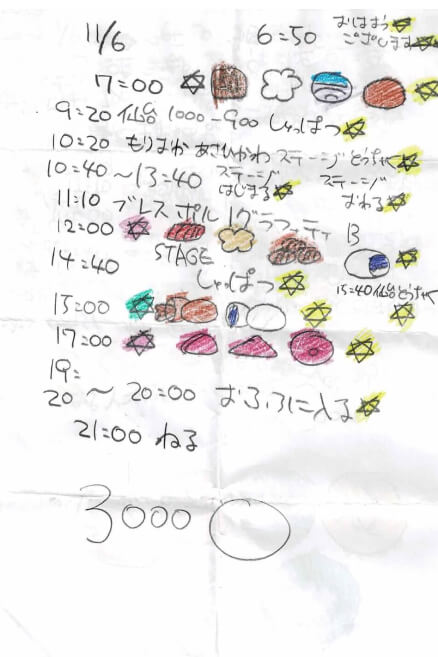 11/6 6=50 おはおう
ございます
7=00
9=20 仙台 1000-900 しゅっぱつ
10=20 もりおか あさひかわ ステージ とうちゃく
10=40～13=40 ステージ はじまる ステージ おわる
11=10 ブレス ポル1グラフィティ
12=00 13
14=40 STAGE
しゅっぱつ
15=40 仙台とうちゃく
15=00
17=00
19=
20 ～ 20=00 おふろに入る
21=00 ねる
3000